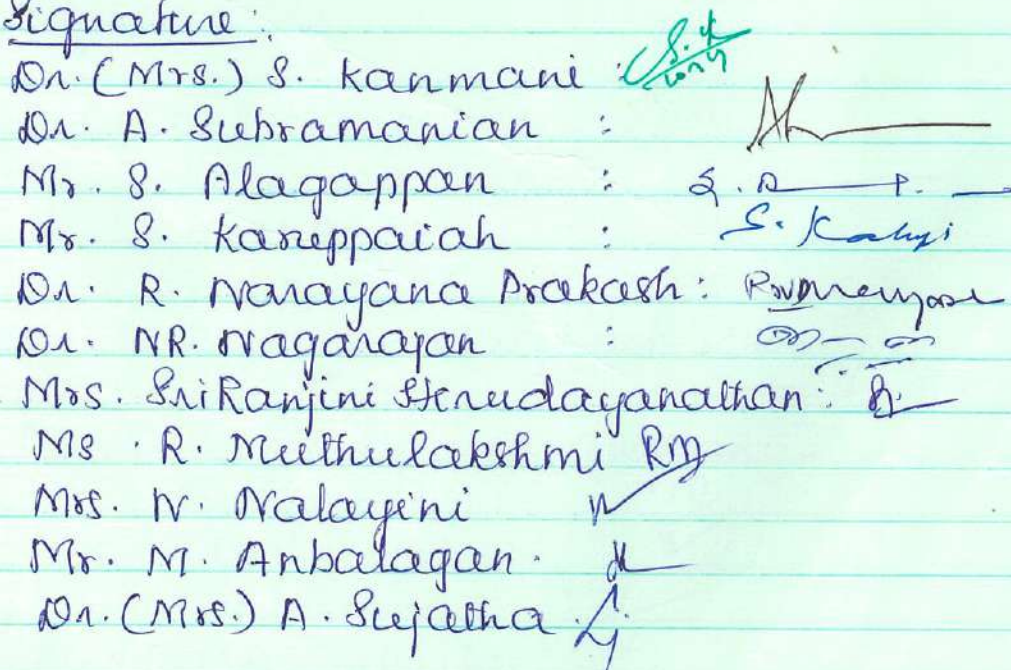 Signature:
Dr. (Mrs.) S. Kanmani :
Dr. A. Subramanian :
Mr. S. Alagappan : S. A P.
Mr. S. Karuppaiah : S.
Dr. R. Narayana Prakash :
Dr. NR. Nagarajan :
Mrs. SriRanjini Hirudayanathan :
Ms. R. Muthulakshmi RM
Mrs. N. Nalayini
Mr. M. Anbalagan.
Dr. (Mrs.) A. Sujatha